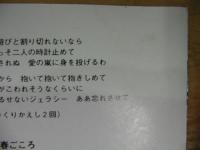 遊びと割り切れないなら
っそ二人の時計止めて
されぬ 愛の嵐に身を投げるわ
から 抱いて抱いて抱きしめて
がこわれそうなくらいに
るせないジェラシー ああ忘れさせて
くりかえし2回)
春ごころ